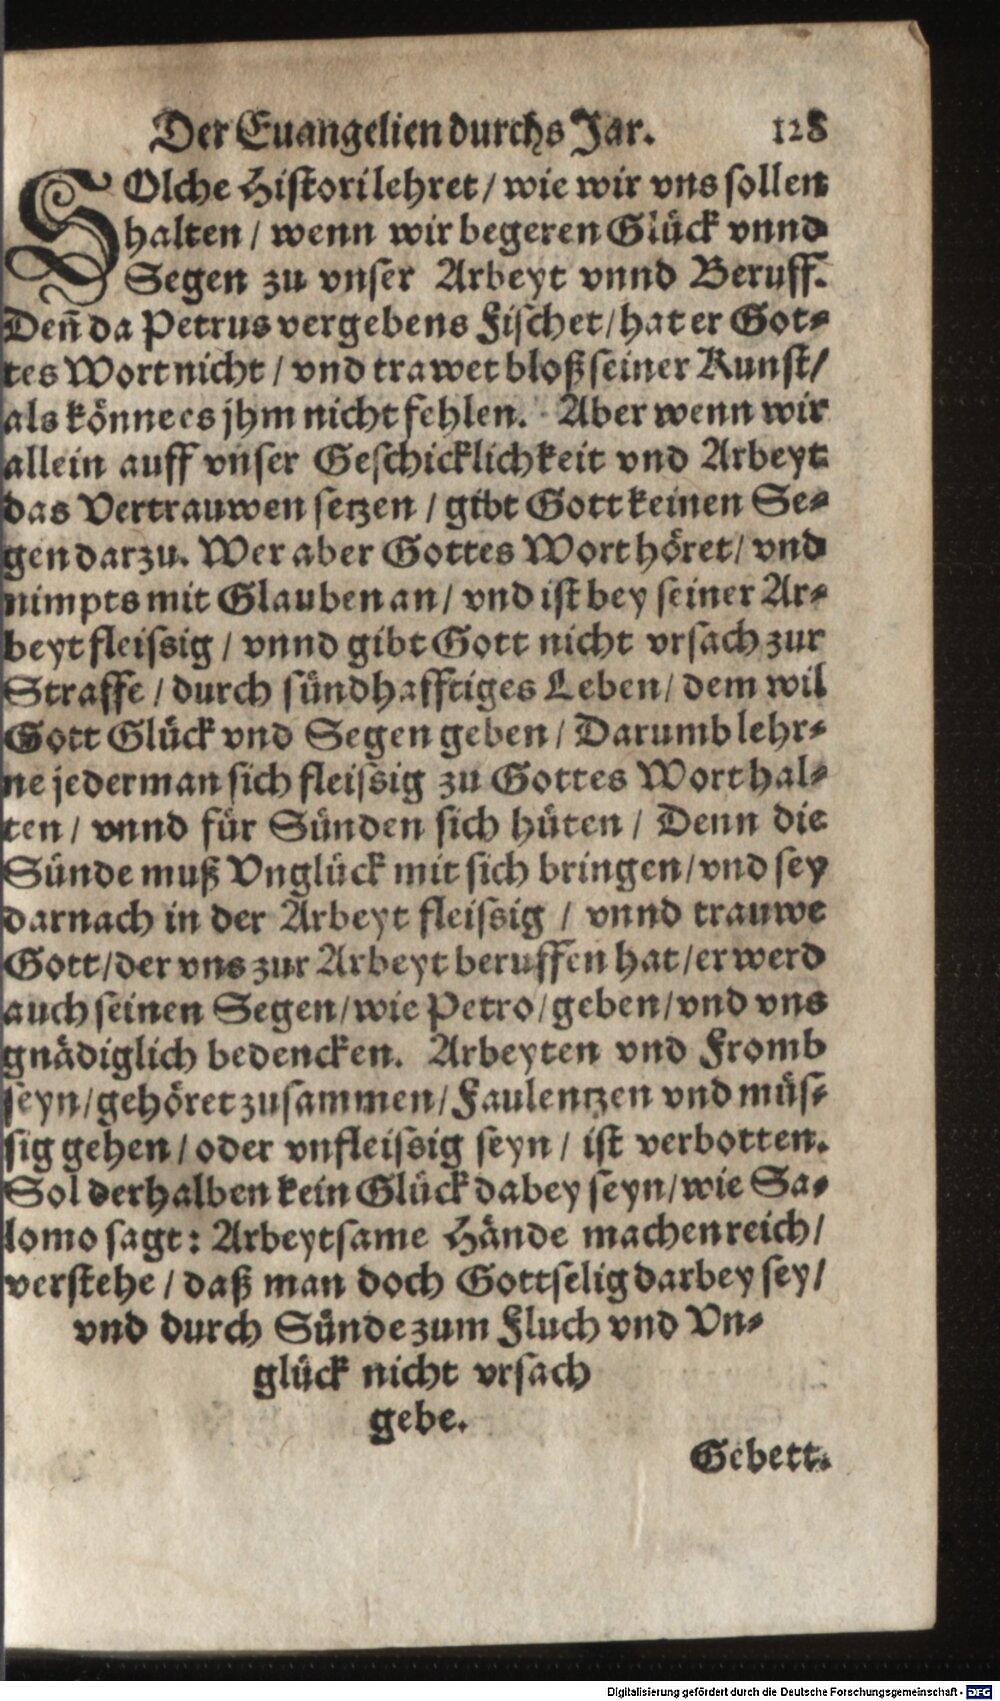 Der Euangelien durchs Jar. 128
SOlche Histori lehret / wie wir vns sollen
halten / wenn wir begeren Glück vnnd
Segen zu vnser Arbeyt vnnd Beruff.
Deñ da Petrus vergebens Fischet / hat er Got-
tes Wort nicht / vnd trawet bloß seiner Kunst /
als könne es jhm nicht fehlen. Aber wenn wir
allein auff vnser Geschicklichkeit vnd Arbeyt
das Vertrauwen setzen / gibt Gott keinen Se-
gen darzu. Wer aber Gottes Wort höret / vnd
nimpts mit Glauben an / vnd ist bey seiner Ar-
beyt fleissig / vnnd gibt Gott nicht vrsach zur
Straffe / durch sündhafftiges Leben / dem wil
Gott Glück vnd Segen geben / Darumb lehr-
ne jederman sich fleissig zu Gottes Wort hal-
ten / vnnd für Sünden sich hüten / Denn die
Sünde muß Vnglück mit sich bringen / vnd sey
darnach in der Arbeyt fleissig / vnnd trauwe
Gott / der vns zur Arbeyt beruffen hat / er werd
auch seinen Segen / wie Petro / geben / vnd vns
gnädiglich bedencken. Arbeyten vnd Fromb
seyn / gehöret zusammen / Faulentzen vnd müs-
sig gehen / oder vnfleissig seyn / ist verbotten.
Sol derhalben kein Glück dabey seyn / wie Sa-
lomo sagt : Arbeytsame Hände machen reich /
verstehe / daß man doch Gottselig darbey sey /
vnd durch Sünde zum Fluch vnd Vn-
glück nicht vrsach
gebe.
Gebett.
Digitalisierung gefördert durch die Deutsche Forschungsgemeinschaft - DFG